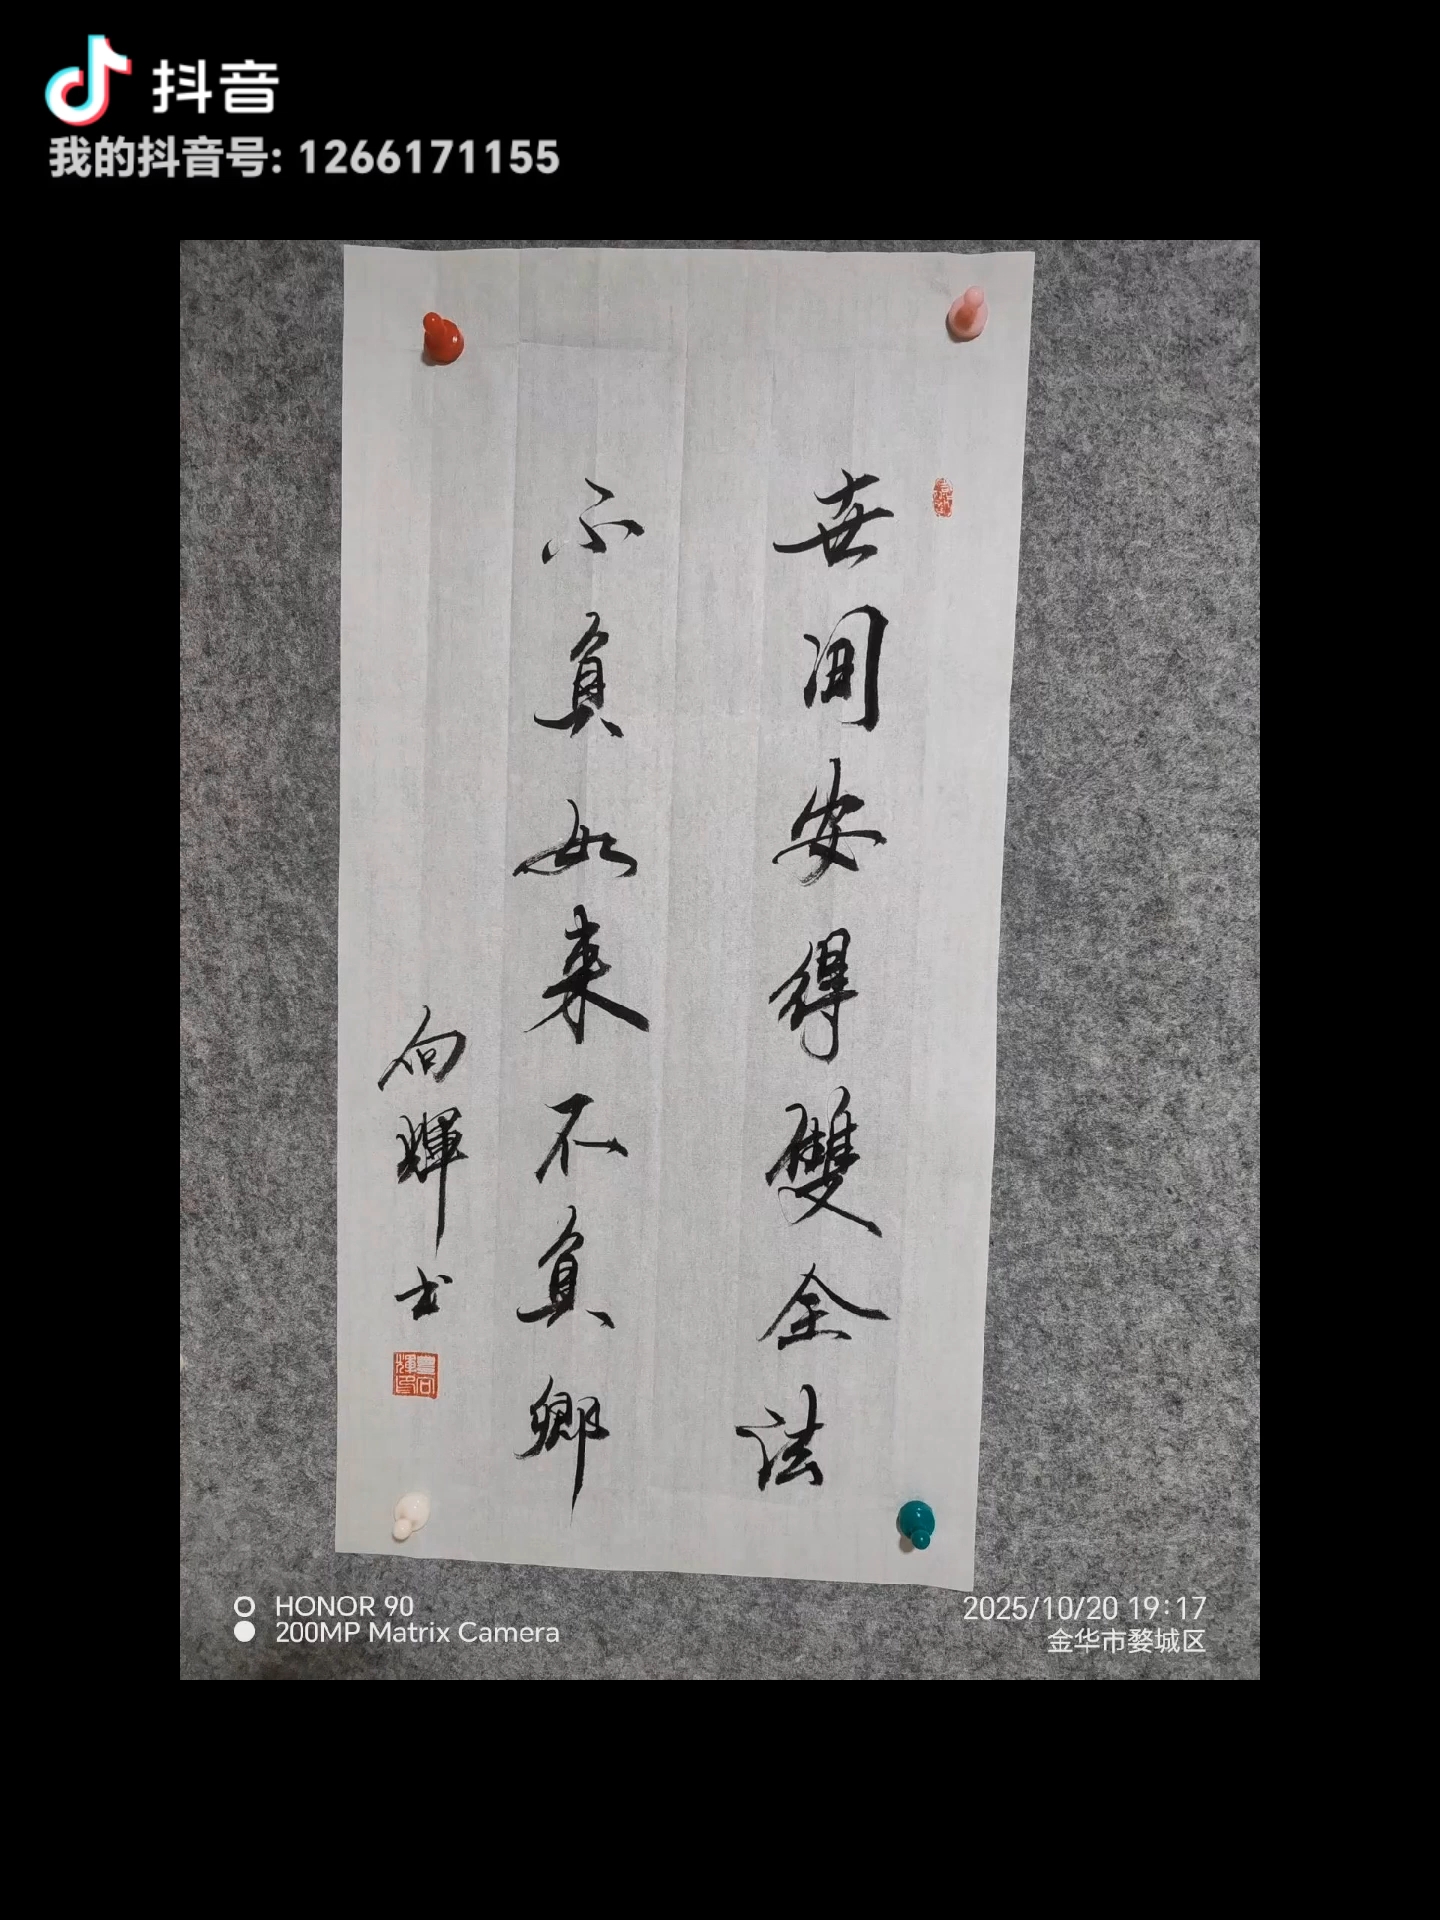 抖音
我的抖音号: 1266171155
世间安得雙全法
不負如来不負卿
向輝书
HONOR 90
200MP Matrix Camera
2025/10/20 19:17
金华市婺城区